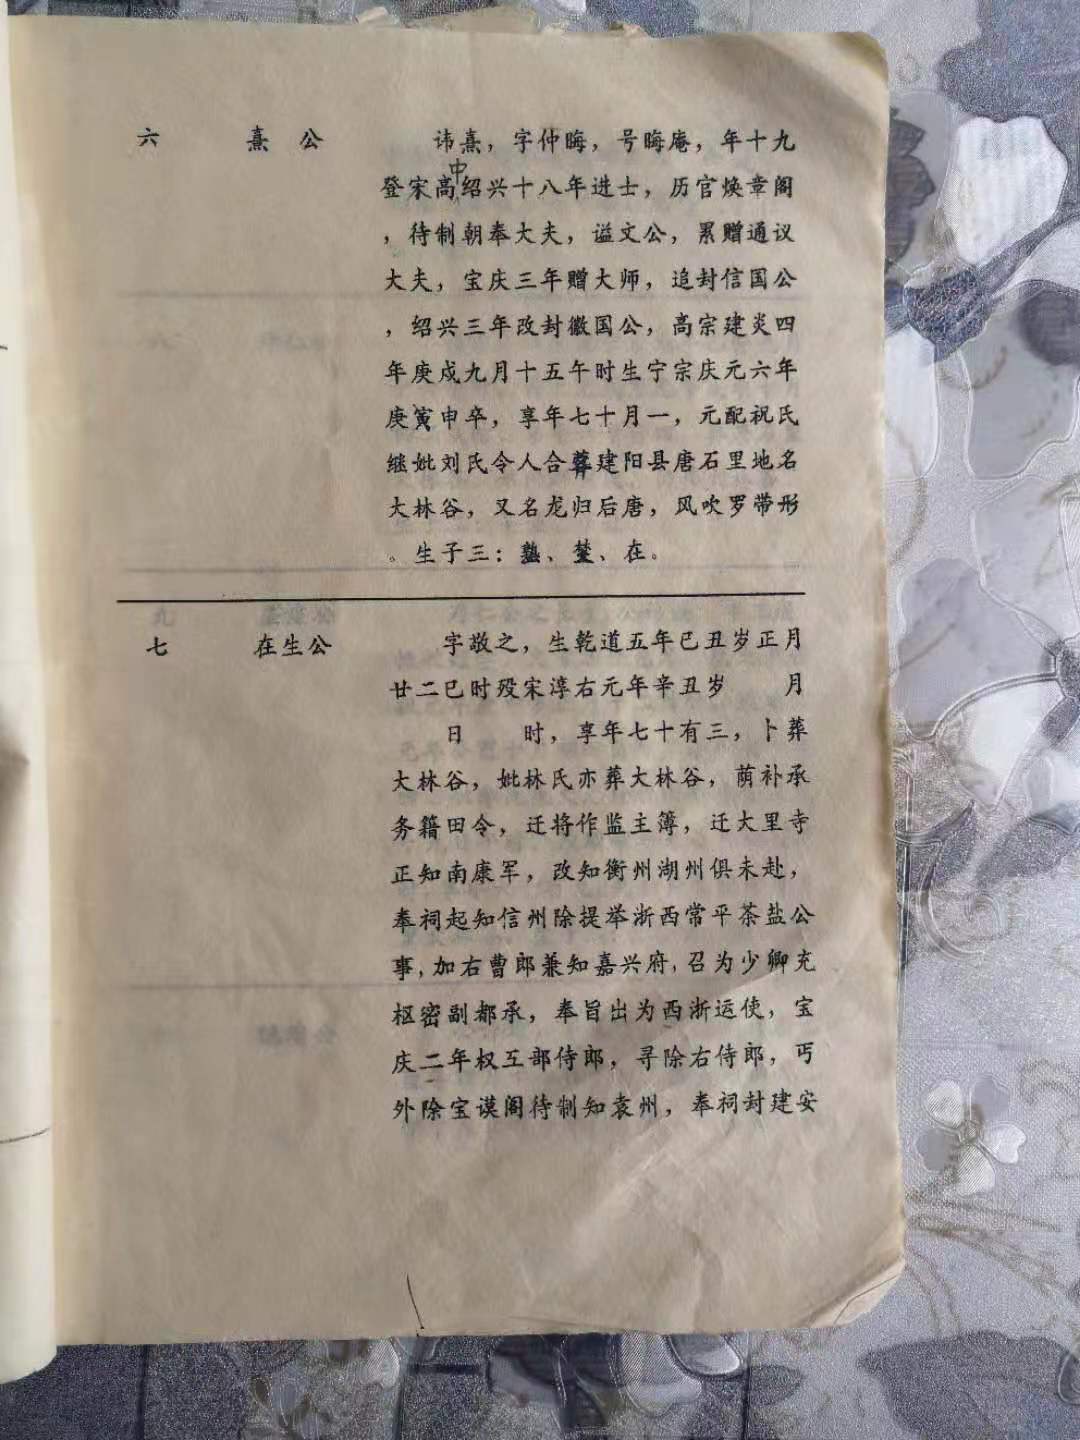 六 熹 公 讳熹，字仲晦，号晦庵，年十九
中
登宋高绍兴十八年进士，历官焕章阁
，待制朝奉大夫，谥文公，累赠通议
大夫，宝庆三年赠大师，追封信国公
，绍兴三年改封徽国公，高宗建炎四
年庚戍九月十五午时生宁宗庆元六年
庚寅申卒，享年七十月一，元配祝氏
继妣刘氏令人合葬建阳县唐石里地名
大林谷，又名龙归后唐，风吹罗带形
。生子三：塾、埜、在。
七 在生公 字敬之，生乾道五年已丑岁正月
廿二巳时殁宋淳右元年辛丑岁 月
日 时，享年七十有三，卜葬
大林谷，妣林氏亦葬大林谷，荫补承
务籍田令，迁将作监主簿，迁大里寺
正知南康军，改知衡州湖州俱未赴，
奉祠起知信州除提举浙西常平茶盐公
事，加右曹郎兼知嘉兴府，召为少卿充
枢密副都承，奉旨出为西浙运使，宝
庆二年权工部侍郎，寻除右侍郎，丐
外除宝谟阁待制知袁州，奉祠封建安